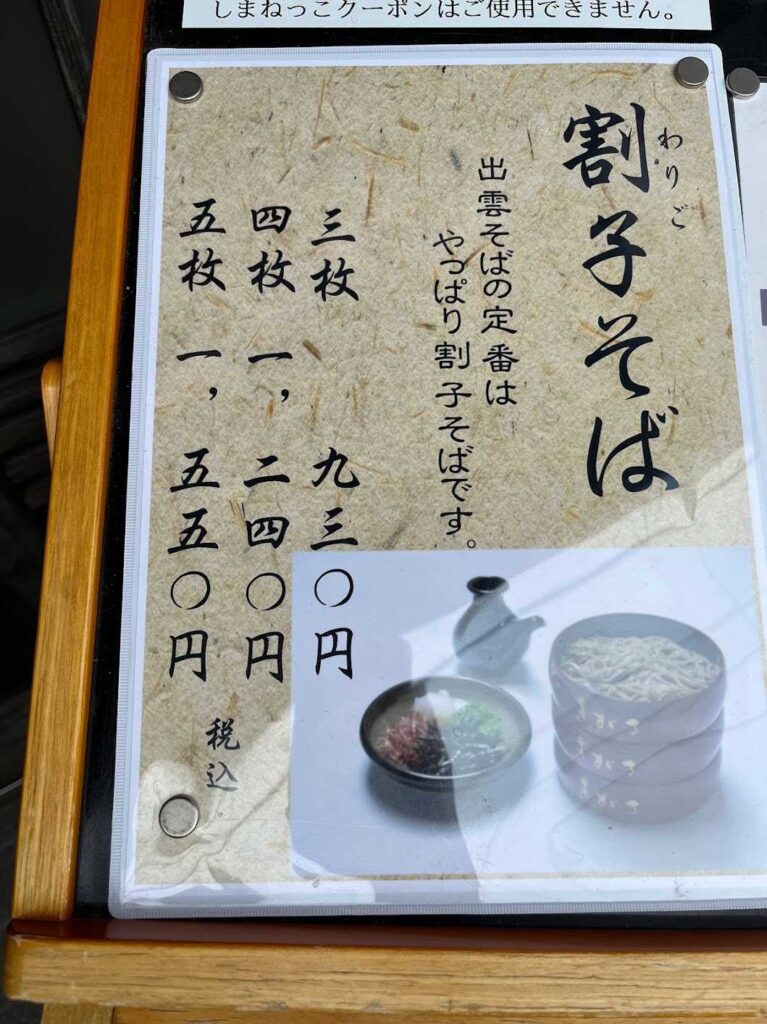 しまねっこクーポンはご使用できません。
割子そば
わりご
出雲そばの定番は
やっぱり割子そばです。
三枚 九三〇円
四枚 一，二四〇円
五枚 一，五五〇円
税込